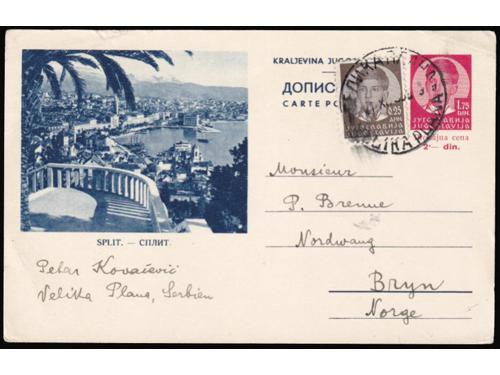 KRALJEVINA JUGO
ДОПИС
CARTE PO
0.25
ЈУГОСЛАВИЈА
JUGOSLAVIJA
1.75
DIN.
ЈУГОСЛАВИЈА
JUGOSLAVIJA
cena
2·— din.
SPLIT. — СПЛИТ.
Petar Kovačević
Velika Plana, Serbien
Monsieur
P. Brenne
Nordwang
Bryn
Norge